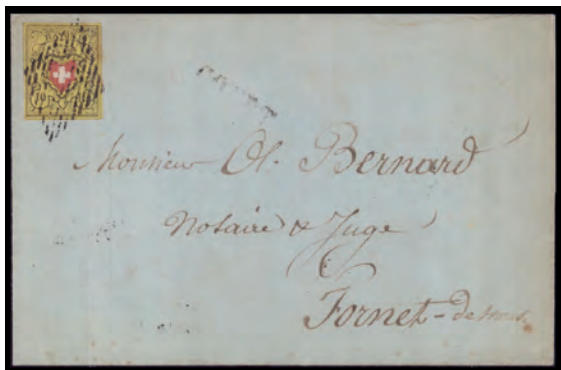 10
Monsieur Ol. Bernard
Notaire & Juge
Fornet-dessous.